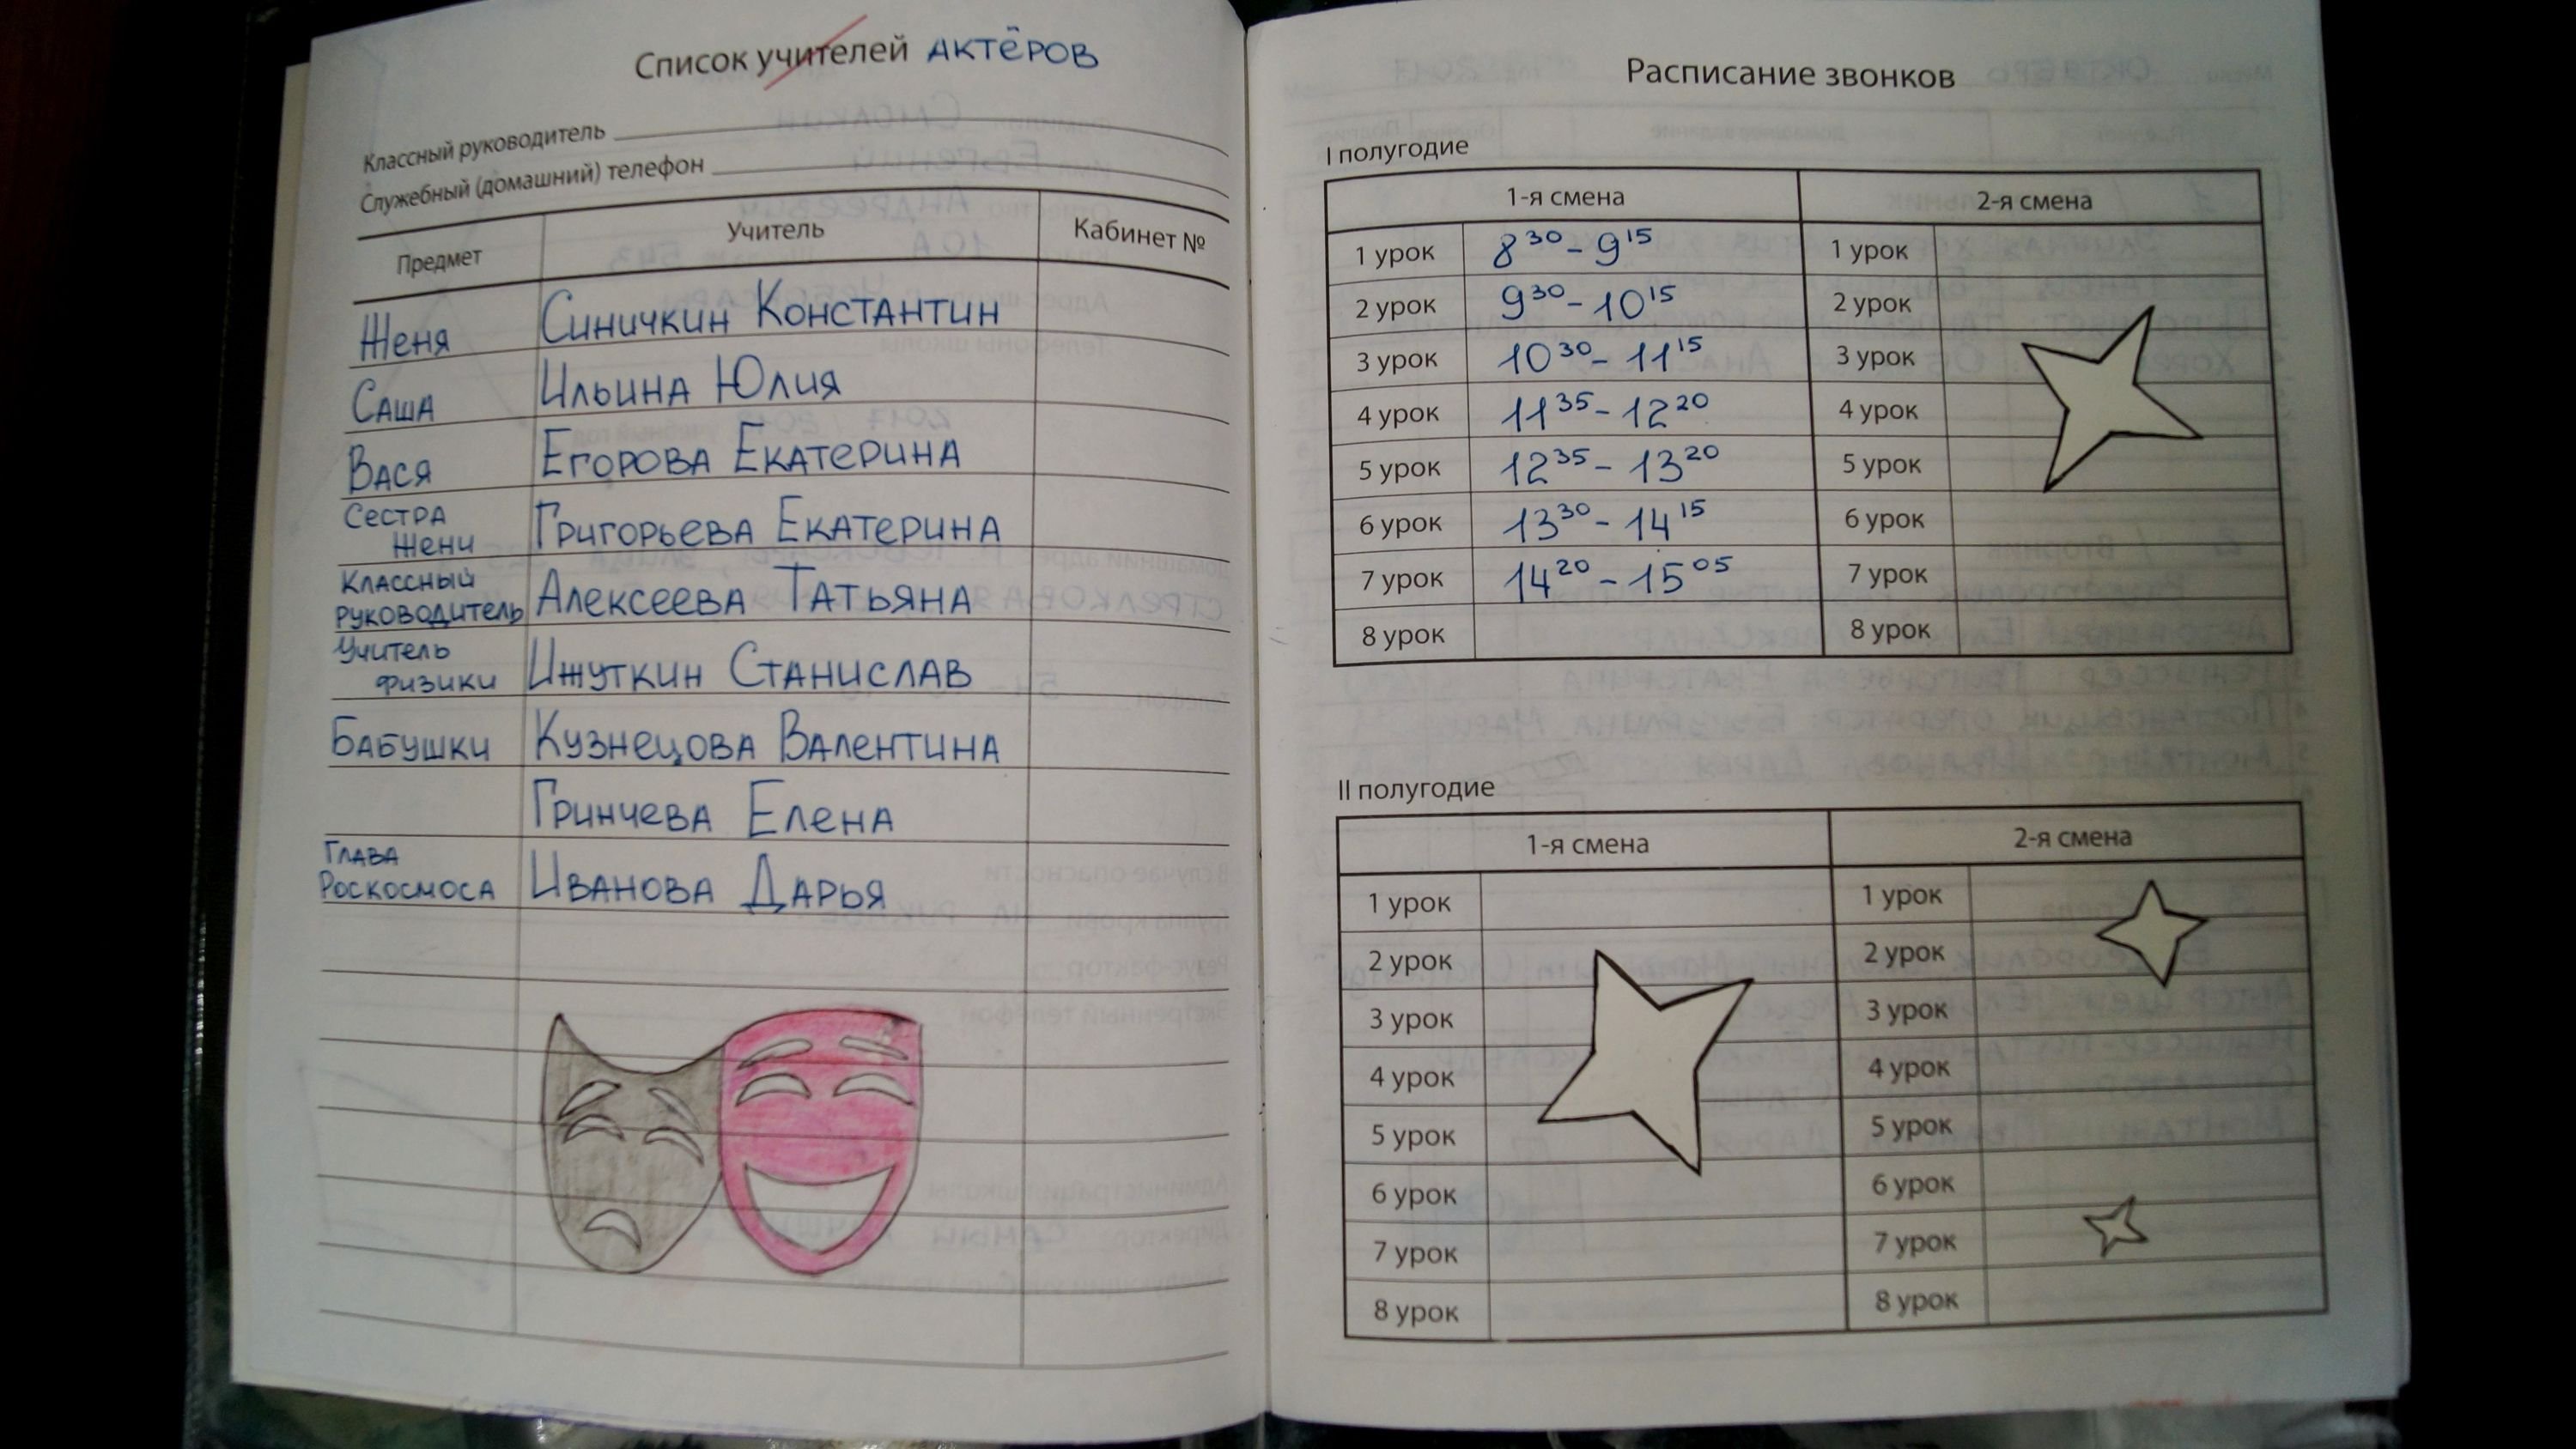 Список учителей АКТЁРОВ
Классный руководитель
Служебный (домашний) телефон
Предмет Учитель Кабинет №
Женя Синичкин Константин
Саша Ильина Юлия
Вася Егорова Екатерина
Сестра Жени Григорьева Екатерина
Классный руководитель Алексеева Татьяна
Учитель физики Ижуткин Станислав
Бабушки Кузнецова Валентина
Гринчева Елена
Глава Роскосмоса Иванова Дарья
Расписание звонков
I полугодие
1-я смена 2-я смена
1 урок 8³⁰ - 9¹⁵ 1 урок
2 урок 9³⁰ - 10¹⁵ 2 урок
3 урок 10³⁰ - 11¹⁵ 3 урок
4 урок 11³⁵ - 12²⁰ 4 урок
5 урок 12³⁵ - 13²⁰ 5 урок
6 урок 13³⁰ - 14¹⁵ 6 урок
7 урок 14²⁰ - 15⁰⁵ 7 урок
8 урок 8 урок
II полугодие
1-я смена 2-я смена
1 урок 1 урок
2 урок 2 урок
3 урок 3 урок
4 урок 4 урок
5 урок 5 урок
6 урок 6 урок
7 урок 7 урок
8 урок 8 урок